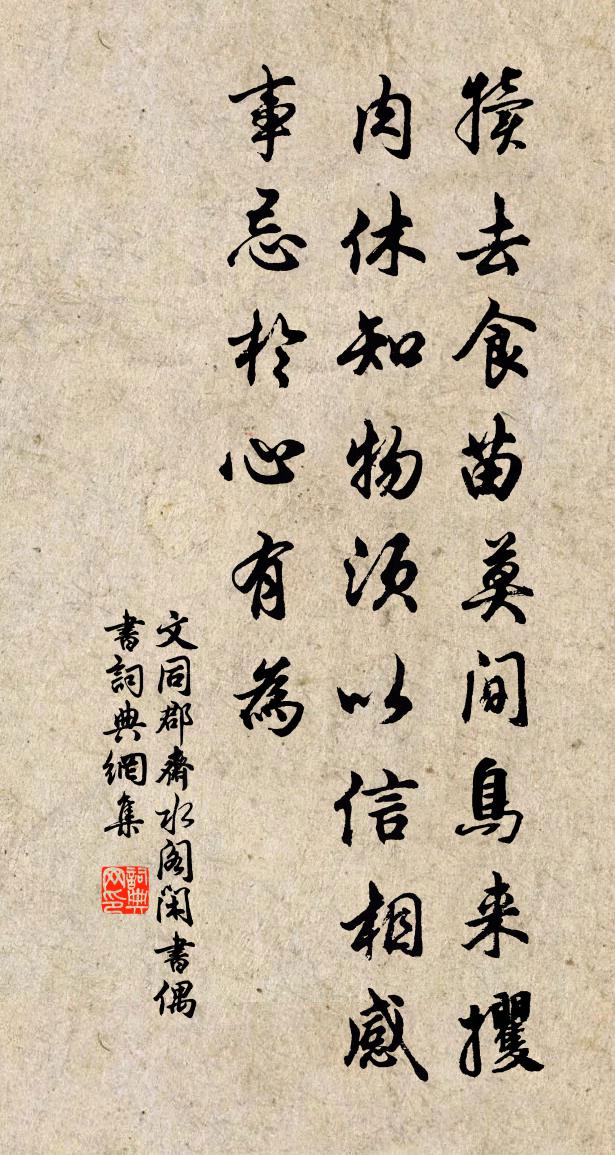 犢去食苗莫問鳥来攫
肉休知物須以信相感
事忌於心有為
文同郡齋水閣閑書偶
書詞典網集
詞典网印